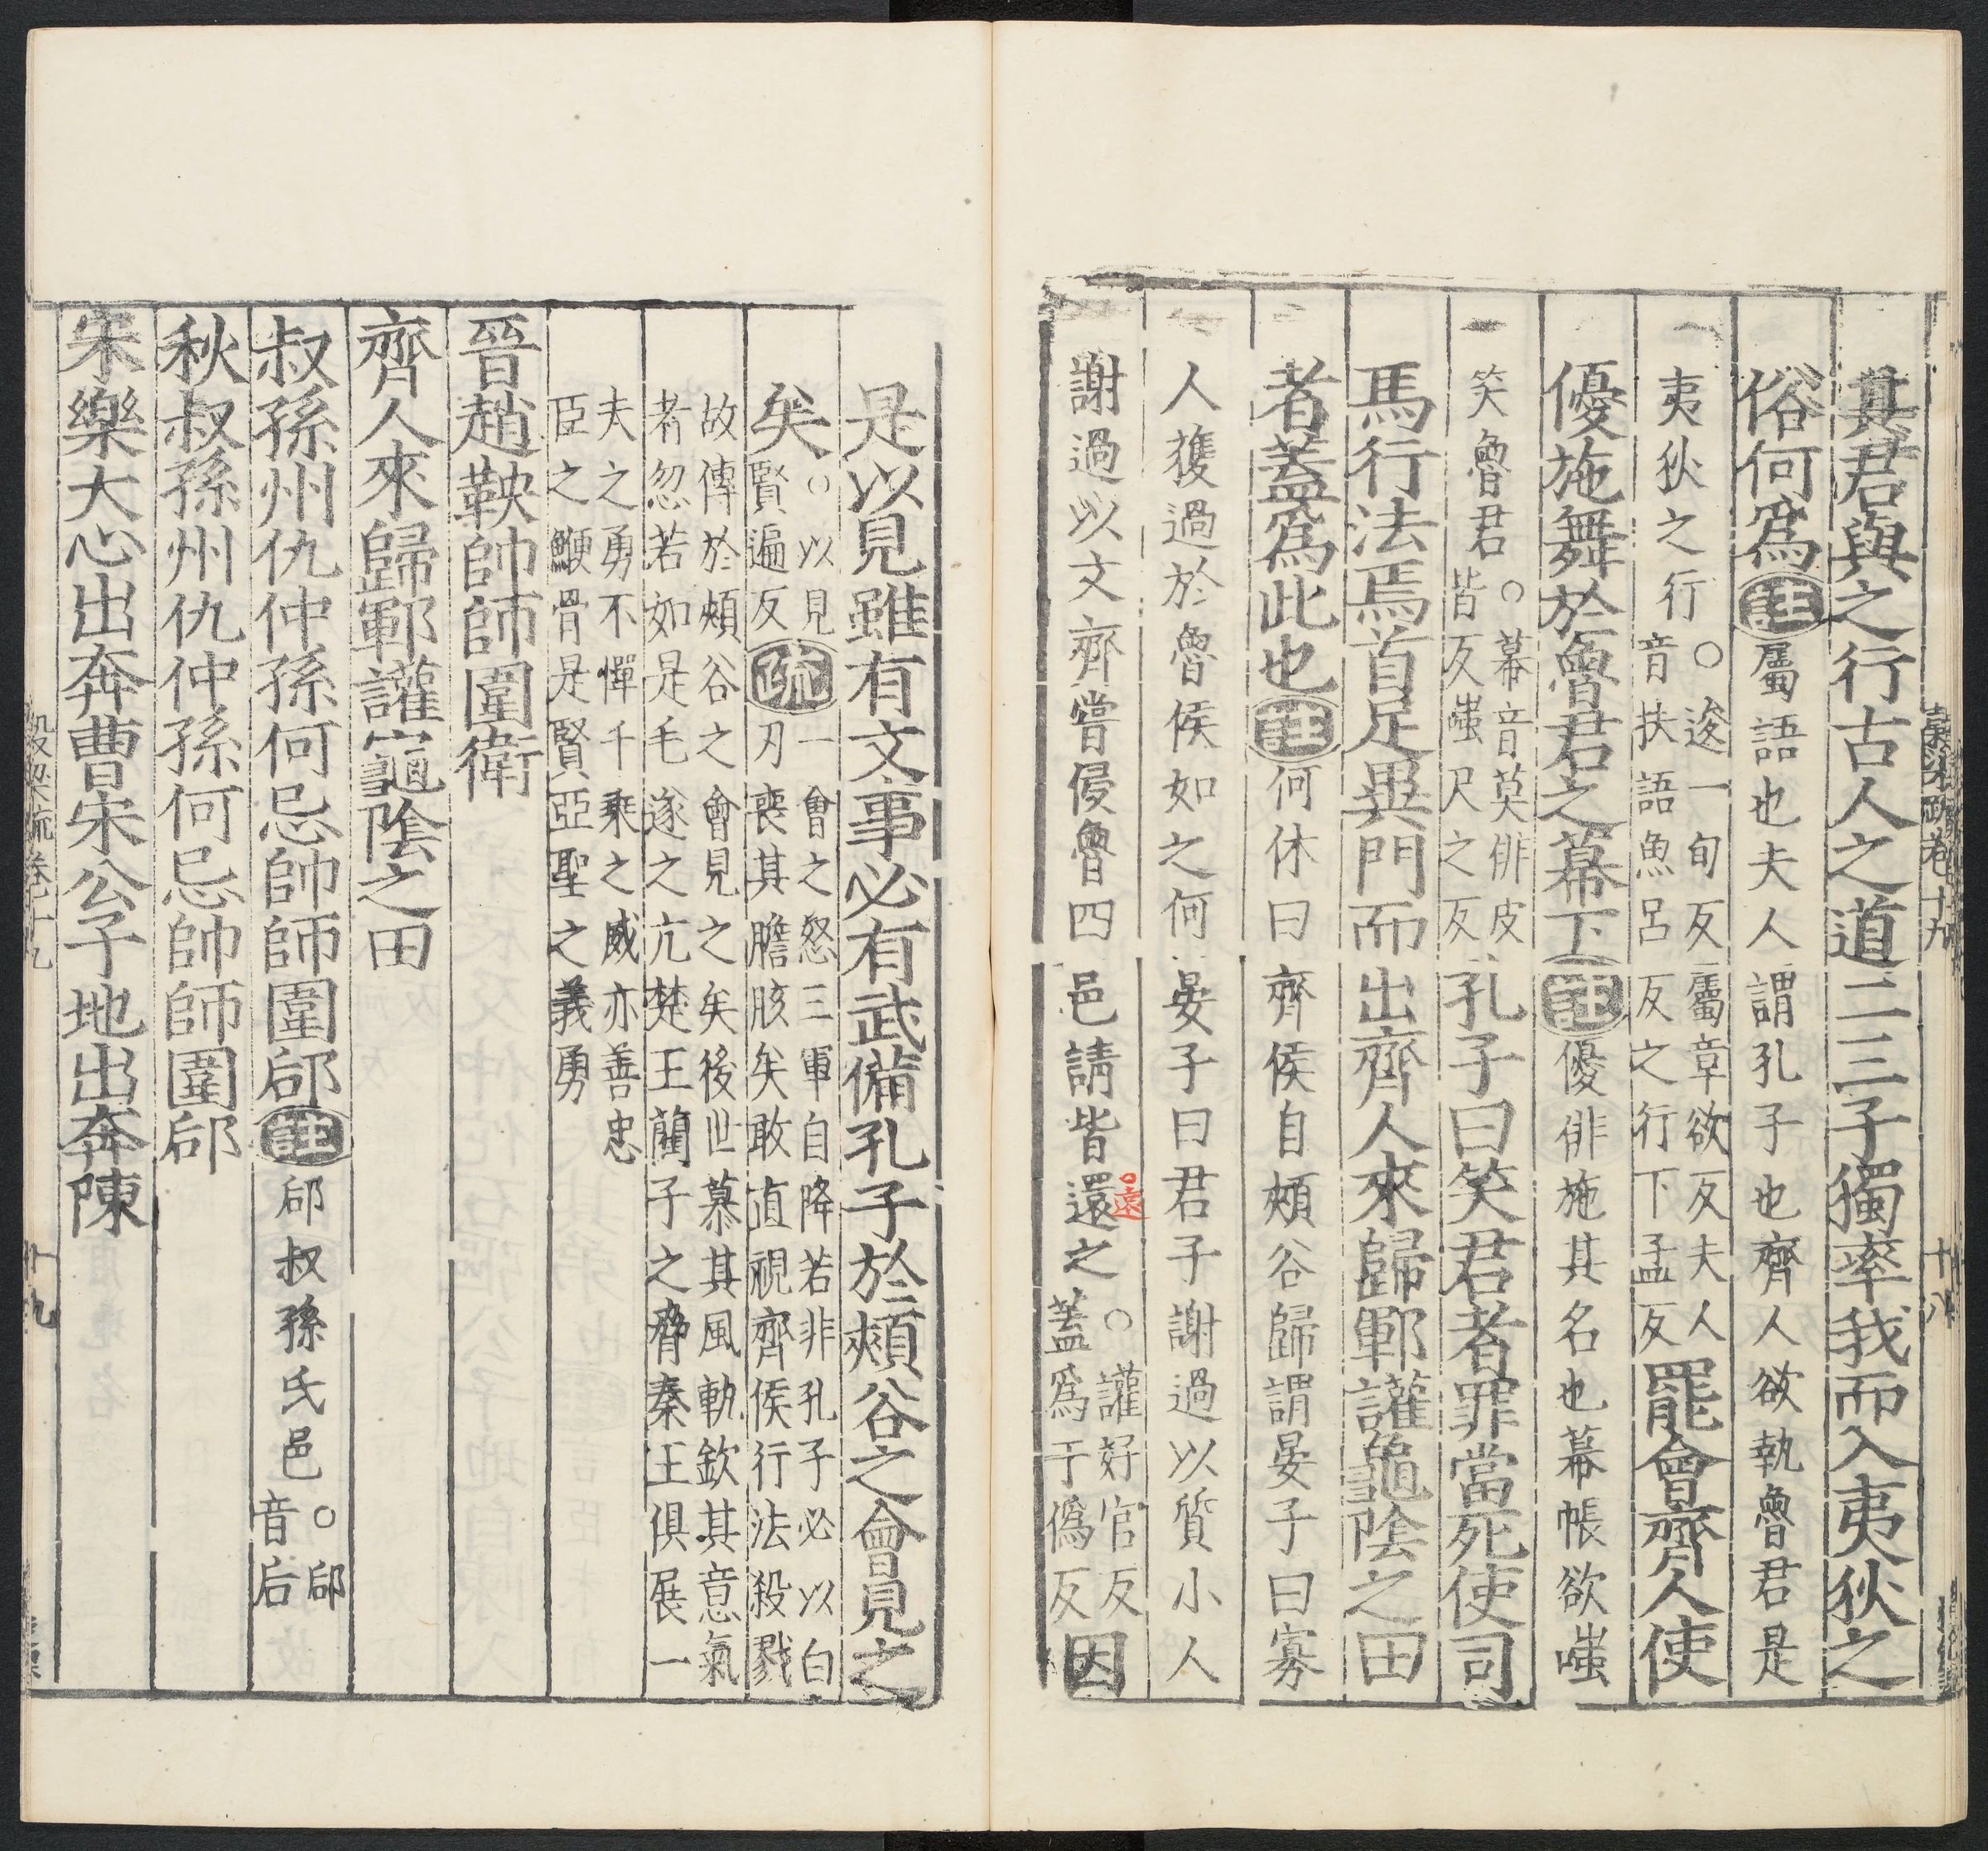 其君與之行古人之道二三子獨率我而入夷狄之
俗何爲註屬語也夫人謂孔子也齊人欲執魯君是
夷狄之行○逡一旬反屬章欲反夫人
音扶語魚呂反之行下孟反罷會齊人使
優施舞於魯君之幕下註優俳施其名也幕帳欲嗤
笑魯君○幕音莫俳皮
皆反嗤尺之反孔子曰笑君者罪當死使司
馬行法焉首足異門而出齊人來歸鄆讙龜陰之田
者蓋爲此也註何休曰齊侯自頰谷歸謂晏子曰寡
人獲過於魯侯如之何晏子曰君子謝過以質小人
謝過以文齊嘗侵魯四邑請皆還之○讙好官反
蓋爲于僞反因
還
穀梁疏卷十九
十八
是以見雖有文事必有武備孔子於頰谷之會見之
矣○以見
賢遍反疏一會之怒三軍自降若非孔子必以白
刃喪其膽胲矣敢直視齊侯行法殺戮
故傳於頰谷之會見之矣後世慕其風軌欽其意氣
者忽若如是毛遂之亢楚王藺子之脅秦王俱展一
夫之勇不憚千乘之威亦善忠
臣之鯁骨是賢亞聖之義勇
晉趙鞅帥師圍衛
齊人來歸鄆讙龜陰之田
叔孫州仇仲孫何忌帥師圍郈註郈叔孫氏邑○郈
音后
秋叔孫州仇仲孫何忌帥師圍郈
宋樂大心出奔曹宋公子地出奔陳
穀梁疏卷十九
十九